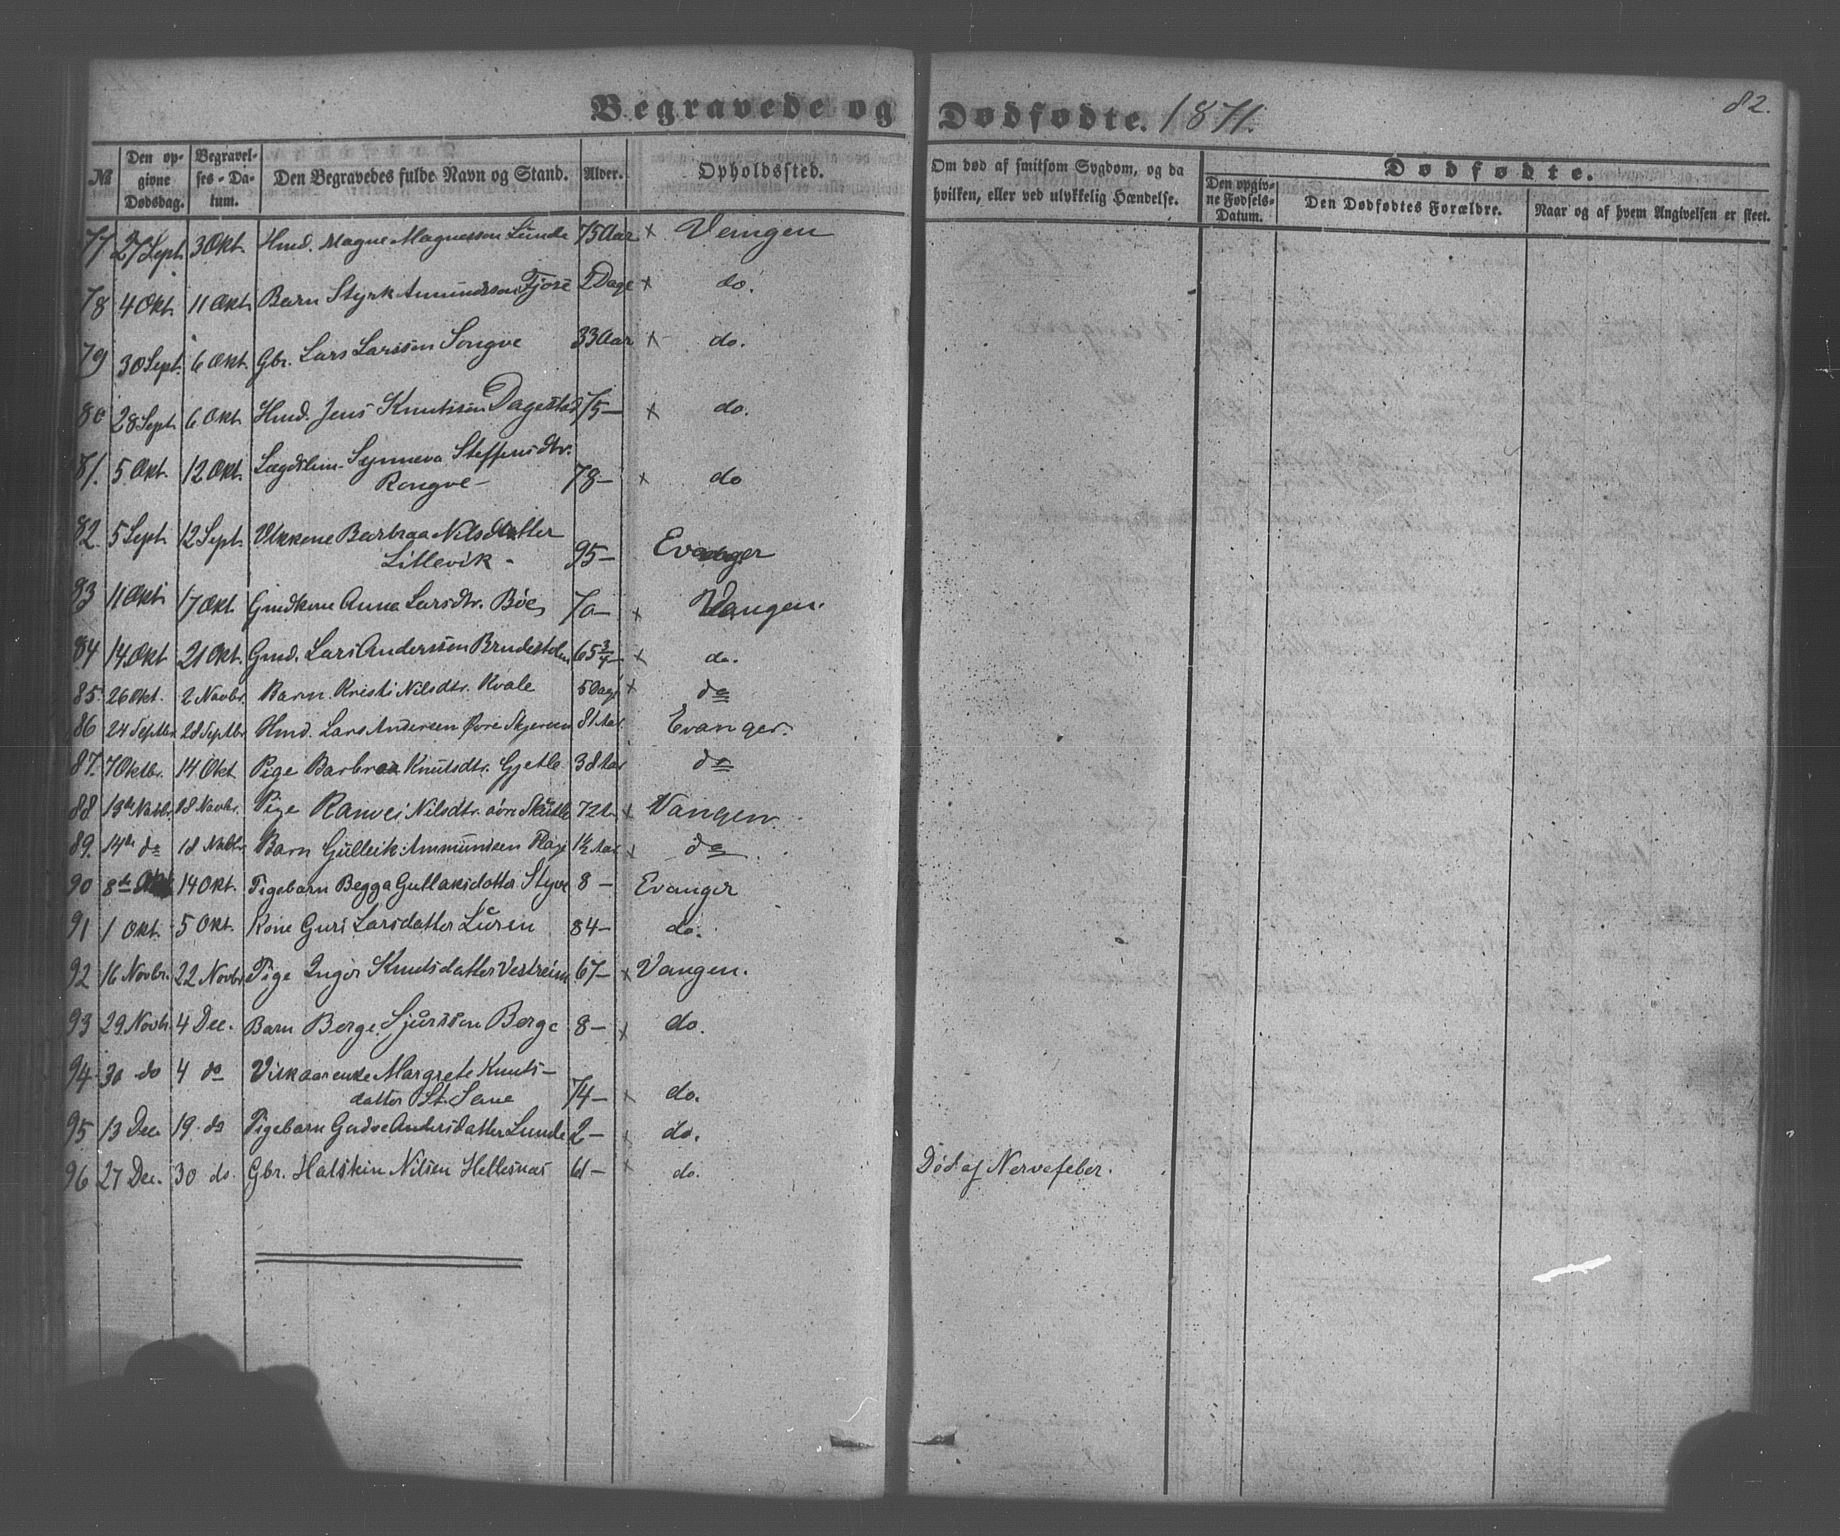 Begravede og Dødfødte. 1871.
82.
No
Den opgivne Dødsdag.
Begravelses-Datum.
Den Begravedes fulde Navn og Stand.
Alder.
Opholdssted.
Om død af smitsom Sygdom, og da hvilken, eller ved ulykkelig Hændelse.
Dødfødte.
Den opgivne Fødsels-Datum.
Den Dødfødtes Forældre.
Naar og af hvem Angivelsen er skeet.
77 27 Sept. 3 Okt. Hmd. Magne Magnesson Lunde 75 Aar x Vangen
78 4 Okt. 11 Okt. Barn Styrk Amundsson Fjose 2 Dage x do.
79 30 Sept. 6 Okt. Gbr. Lars Larssen Songve 33 Aar x do.
80 28 Sept. 6 Okt. Hmd. Jens Knutsson Dagestad 75 — x do.
81. 5 Okt. 12 Okt. Lægdslem Synneva Steffensdtr.
Rongve — 78 — x do
82. 5 Sept. 12 Sept. Barbraa Nilsdatter
Litlevik - 95 — Evanger
83 11 Okt. 17 Okt. Gmdkone Anna Larsdtr. Bøe 70 — x Vangen.
84 14. Okt 21 Okt. Gmd. Lars Anderssen Brudestolen 65 3/4 — x do.
85. 26 Okt. 2 Novbr. Barn Kristi Nilsdtr. Kvale 5 Dage x do
86 24 Septbr. 28 Septbr. Hmd. Lars Andersen Øvre Skjerven 81 Aar Evanger.
87. 7 Oktbr. 14 Okt. Pige Barbraa Knutsdtr. Gjetle 38 Aar do
88 13de Novbr. 18 Novbr. Pige Ranvei Nilsdtr. øvre Skutle 72 x Vangen
89. 14de do 18 Novbr. Barn Gulleik Ammundsen Fløge 1½ Aar x do
90 8de Okt 14 Okt. Pigebarn Begga Gullaksdatter Styve 8 — Evanger
91 1 Okt. 5 Okt. Kone Guri Larsdatter Luren 84 — do.
92 16 Novbr. 22 Novbr Pige Inger Knutsdatter Vestreim 67 — x Vangen.
93 29 Novbr. 4 Dec. Barn Berge Sjursson Berge 8 — x do.
94 30 do 4 do Vilkaarenke Margrete Knuts-
datter St. Seve 74 — x do.
95 13 Dec 19 do Pigebarn Andersdatter Lunde 2 — x do.
96 27 Dec. 30 do. Gbr. Halskin Nilsen Hellesnæs 61 — x do. Død af Nervefeber.